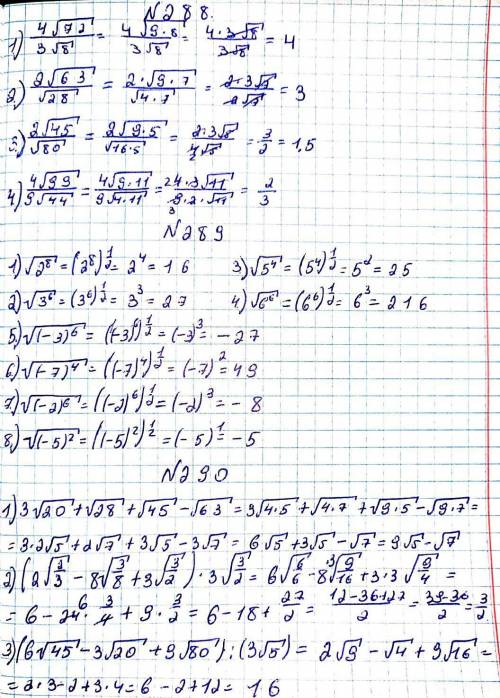 N288.
1) 4√72 / 3√8 = 4√9·8 / 3√8 = 4·3√8 / 3√8 = 4
2) 2√63 / √28 = 2·√9·7 / √4·7 = 2·3√7 / 2√7 = 3
3) 2√45 / √80 = 2√9·5 / √16·5 = 2·3√5 / 4√5 = 3/2 = 1,5
4) 4√99 / 9√44 = 4√9·11 / 9√4·11 = 4·3√11 / 9·2·√11 = 2/3
N289
1) √2⁸ = (2⁸)^1/2 = 2⁴ = 16 3) √5⁴ = (5⁴)^1/2 = 5² = 25
2) √3⁶ = (3⁶)^1/2 = 3³ = 27 4) √6⁶ = (6⁶)^1/2 = 6³ = 216
5) √(-3)⁶ = (-3)⁶)^1/2 = (-3)³ = -27
6) √(-7)⁴ = ((-7)⁴)^1/2 = (-7)² = 49
7) √(-2)⁶ = ((-2)⁶)^1/2 = (-2)³ = -8
8) √(-5)² = ((-5)²)^1/2 = (-5)¹ = -5
N290
1) 3√20 + √28 + √45 - √63 = 3√4·5 + √4·7 + √9·5 - √9·7 =
= 3·2√5 + 2√7 + 3√5 - 3√7 = 6√5 + 3√5 - √7 = 9√5 - √7
2) (2√2/3 - 8√3/8 + 3√3/2) · 3√3/2 = 6√6/6 - 8·3√9/16 + 3·3√9/4 =
= 6 - 24·3/4 + 9·3/2 = 6 - 18 + 27/2 = 12-36+27 / 2 = 39-36 / 2 = 3/2
3) (6√45 - 3√20 + 9√80) : (3√5) = 2√9 - √4 + 3√16 =
= 2·3 - 2 + 3·4 = 6 - 2 + 12 = 16